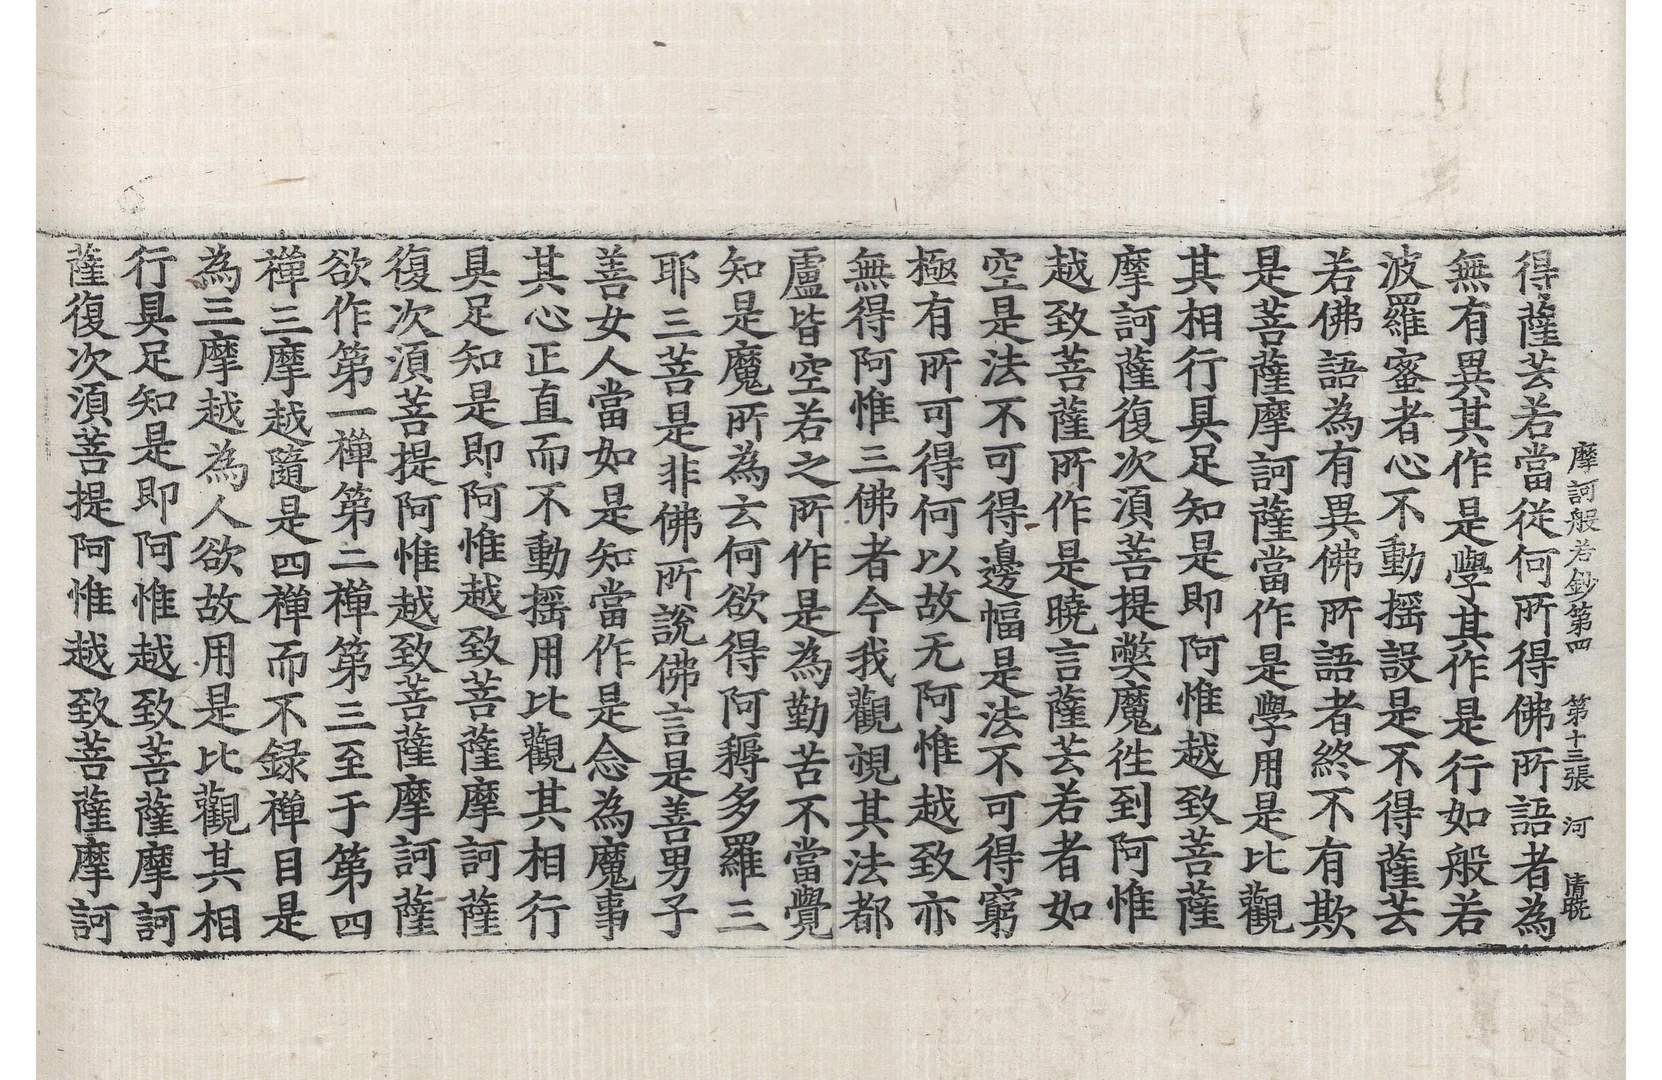 摩訶般若鈔第四　第十三張　河　清曉
得薩芸若當從何所得佛所語者為
無有異其作是學其作是行如般若
波羅蜜者心不動搖設是不得薩芸
若佛語為有異佛所語者終不有欺
是菩薩摩訶薩當作是學用是比觀
其相行具足知是即阿惟越致菩薩
摩訶薩復次湏菩提弊魔徃到阿惟
越致菩薩所作是曉言薩芸若者如
空是法不可得邊幅是法不可得窮
極有所可得何以故无阿惟越致亦
無得阿惟三佛者今我觀視其法都
盧皆空若之所作是為勤苦不當覺
知是魔所為云何欲得阿耨多羅三
耶三菩是非佛所說佛言是善男子
善女人當如是知當作是念為魔事
其心正直而不動摇用比觀其相行
具足知是即阿惟越致菩薩摩訶薩
復次湏菩提阿惟越致菩薩摩訶薩
欲作第一禪第二禪第三至于第四
禪三摩越隨是四禪而不録禪目是
為三摩越為人欲故用是比觀其相
行具足知是即阿惟越致菩薩摩訶
薩復次湏菩提阿惟越致菩薩摩訶